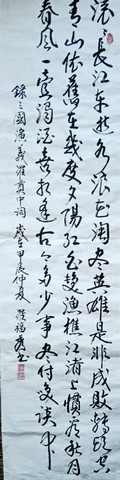 滚〻長江东逝水浪花淘尽英雄是非成败转頭空
青山依舊在幾度夕陽红白髮漁樵江渚上惯看秋月
春风一壶濁酒喜相逢古今多少事尽付笑谈中
錄三國演義羅貫中词 歲在甲辰仲夏 羅福书